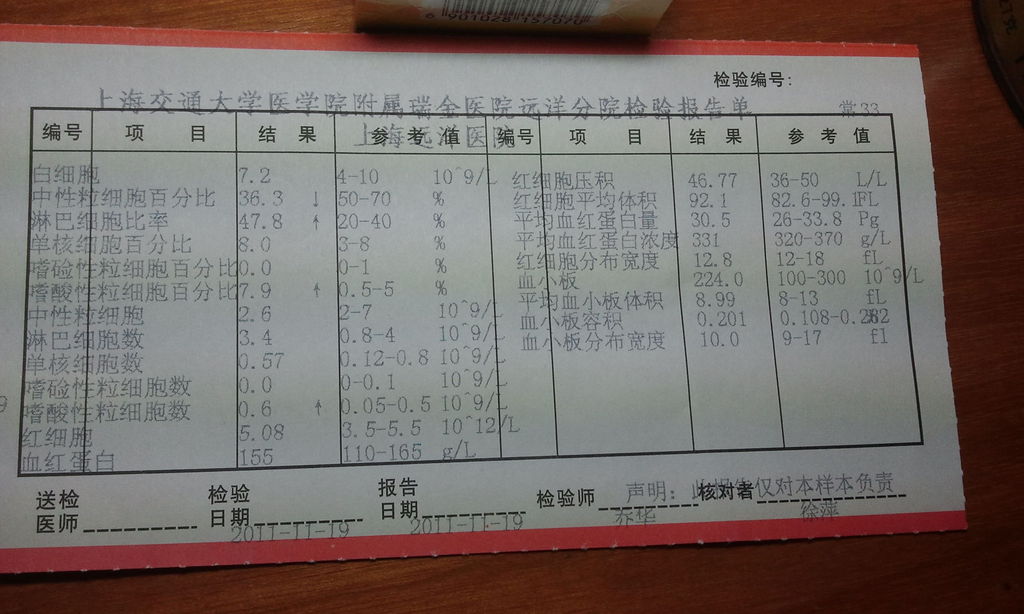 6 901028 157070
检验编号:
上海交通大学医学院附属瑞金医院远洋分院检验报告单 常33
上海远洋医院
编号 项 目 结 果 参 考 值 编号 项 目 结 果 参 考 值
白细胞 7.2 4-10 10^9/L 红细胞压积 46.77 36-50 L/L
中性粒细胞百分比 36.3 ↓ 50-70 % 红细胞平均体积 92.1 82.6-99.1FL
淋巴细胞比率 47.8 ↑ 20-40 % 平均血红蛋白量 30.5 26-33.8 Pg
单核细胞百分比 8.0 3-8 % 平均血红蛋白浓度 331 320-370 g/L
嗜硷性粒细胞百分比0.0 0-1 % 红细胞分布宽度 12.8 12-18 fL
嗜酸性粒细胞百分比7.9 ↑ 0.5-5 % 血小板 224.0 100-300 10^9/L
中性粒细胞 2.6 2-7 10^9/L 平均血小板体积 8.99 8-13 fL
淋巴细胞数 3.4 0.8-4 10^9/L 血小板容积 0.201 0.108-0.282
单核细胞数 0.57 0.12-0.8 10^9/L 血小板分布宽度 10.0 9-17 fl
嗜硷性粒细胞数 0.0 0-0.1 10^9/L
嗜酸性粒细胞数 0.6 ↑ 0.05-0.5 10^9/L
红细胞 5.08 3.5-5.5 10^12/L
血红蛋白 155 110-165 g/L
送检医师 检验日期 2011-11-19 报告日期 2011-11-19 检验师 乔华 核对者 徐萍
声明: 此报告仅对本样本负责